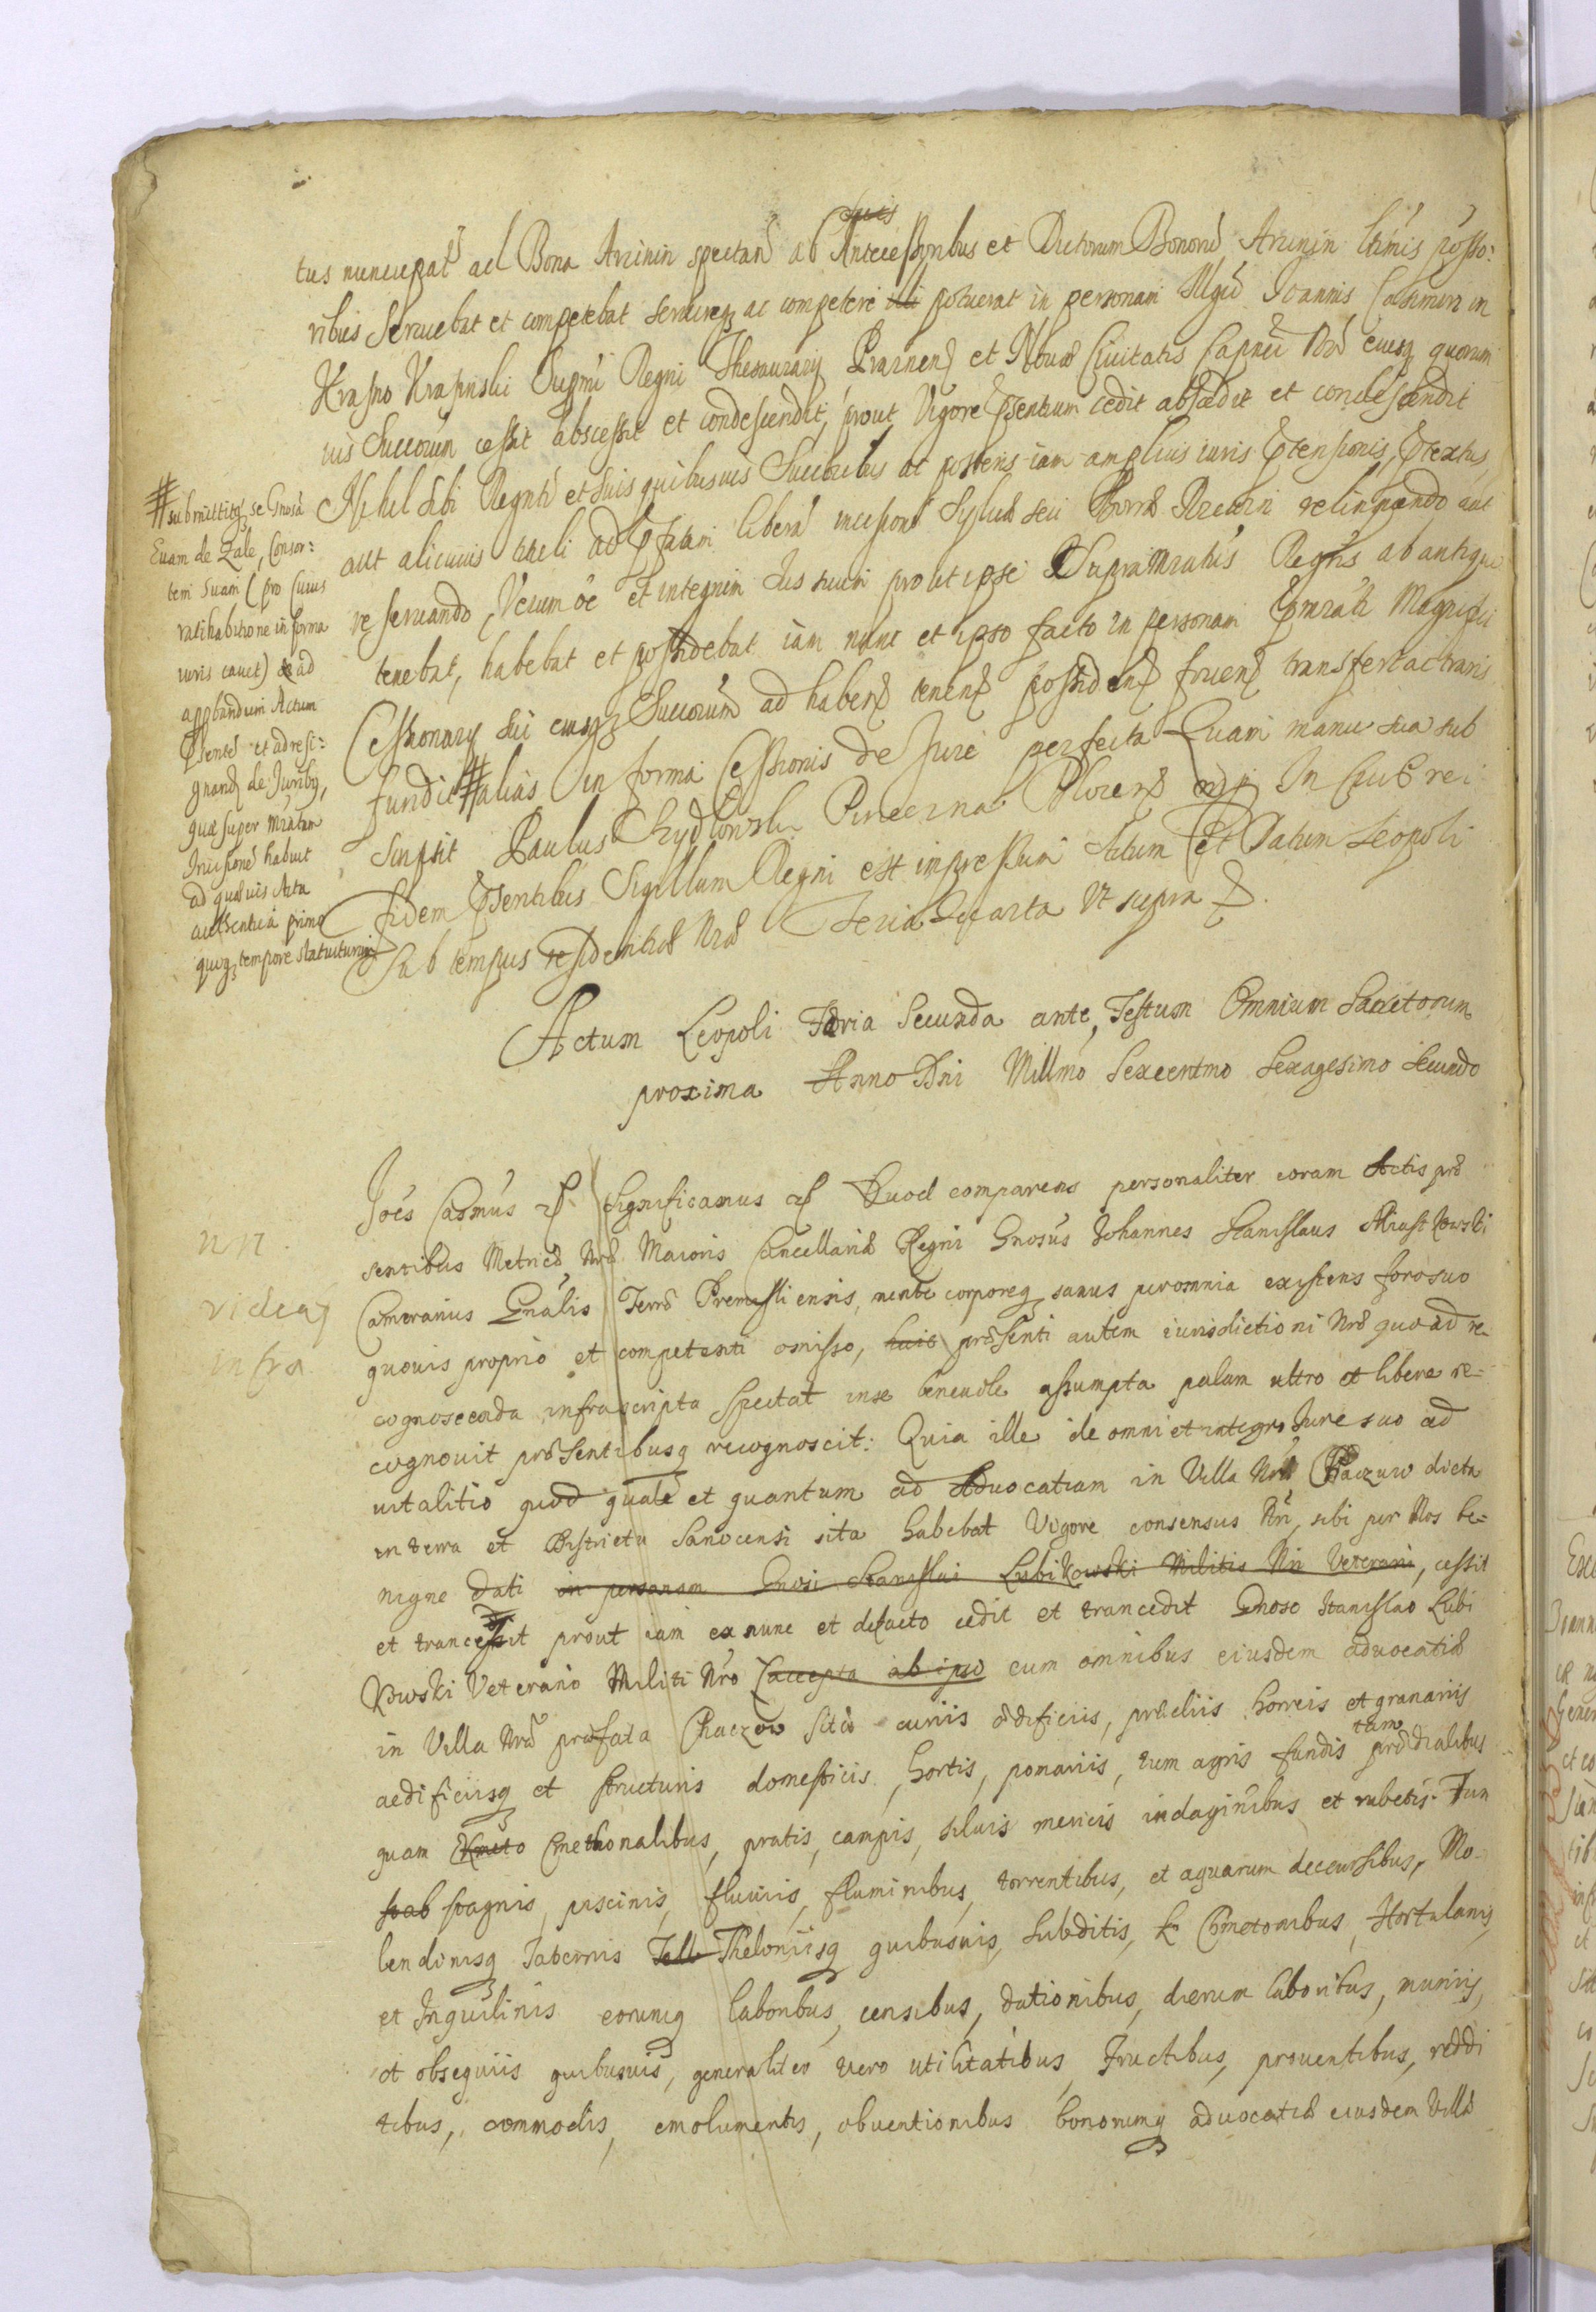 tus nuncupat ad Bona Arzinin spectan ab Antecessoribus et Dictorum Bonorum Arzinin ltimis posso:
ribus Servuebat et competebat seruireq ac competere illi potuerat in personam Mgci Joannis Casimiri in
Krasno Krasinski Supmi Regni Thesaurarij et Novae Ciuitatis Capnei Nri eiusq quorum
uis Succorum cessit abscessit et condescendit, prout Vigore psentium cedit abscedit et condescendit
Nihil sibi Regnti et suis quibusuis Succribus ac posteris iam amplius iuris ptensionis, ptextus,
aut alicuius tituli ad pfatam libera Syluae seu relinquendo aut
reseruando, Verum oe et integrum Jus suum prout ipse Supramratus Regns ab antiquo
tenebat, habebat et possidebat iam nunc et ipso facto in personam pmrati Magnifici
Cessionarij sui eiusq Succorum ad haben tenen possiden fruen transfert ac trans
fundit # alias in forma Cessionis de Jure perfecta Quam manu sua sub
scripsit Paulus Chrydlowski Pincerna In Cuius rei
fidem psentibus Sigillum Regni est impressum Actum et Datum Leopoli
Sub tempus residentiae Nrae Feria Quarta Vt supra
# submittitq se Gnosa
Euam de Zale, Consor:
tem suam (pro cuius
ratihabitione in forma
iuris cauet) ad
appbandum Actum
psente et ad resi:
gnand de Juribq,
quae super mratam
habuit
ad quaeuis Acta
authentica primo
quoq tempore statuiturum
Actum Leopoli Feria Secunda ante Festum Omnium Sanctorum
proxima Anno Dni Millmo Sexcentmo Sexagesimo Secundo
nn.
videaq
infra
Joes Casmus Significamus Quod comparens personaliter coram Actis prae
sentibus Metricae Nrae Maioris Cancellariae Regni Gnosus Johannes Stanislaus
Camerarius Gnalis Terrae Premisliensis, mente corporeq sanus per omnia existens foro suo
quouis proprio et competenti omisso, huic praesenti autem iurisdictioni Nrae quo ad re-
cognoscenda infrascripta spectat in se beneuole assumpta palam ultro et libere re=
cognouit praesentibusq recognoscit: Quia ille de omni et integro Jure suo ad
uitalitio quod quale et quantum ad Aduocatiam in Villa Nra Raczuw dicta
in terra et Districtu Sanocensi sita habebat Vigore consensus Nri, sibi per Nos be=
nigne dati in personam Gnosi Stanislai Lubikowski Militis Nri Veterani, cessit
et trancessit prout iam ex nunc et defacto cedit et trancedit Gnoso Stanislao Lubi
kowski Veterano Militi Nro accepta ab ipso cum omnibus eiusdem aduocatiae
in Villa Nra praefata Raczow sitae curiis aedificiis, praediis horreis et granariis
aedificiisq et structuris domesticis, hortis, pomariis, tum agris fundis tam praedialibus
quam Kmeto Cmethonalibus, pratis, campis, siluis mericis indaginibus et rubetis. Tum
stab stagnis, piscinis, fluuiis, fluminibus, torrentibus, et aquarum decursibus, Mo-
lendinisq Tabernis Tell Theloniisq quibusuis, Subditis, Cmetonibus, Hortulanis,
et Inquilinis eorumq laboribus, censibus, dationibus, dierum laboribus, muniis,
et obsequiis quibusuis, generaliter vero utilitatibus, fructibus, prouentibus, reddi
tibus, commodis, emolumentis, obuentionibus bonorumq aduocatiae eiusdem Villae